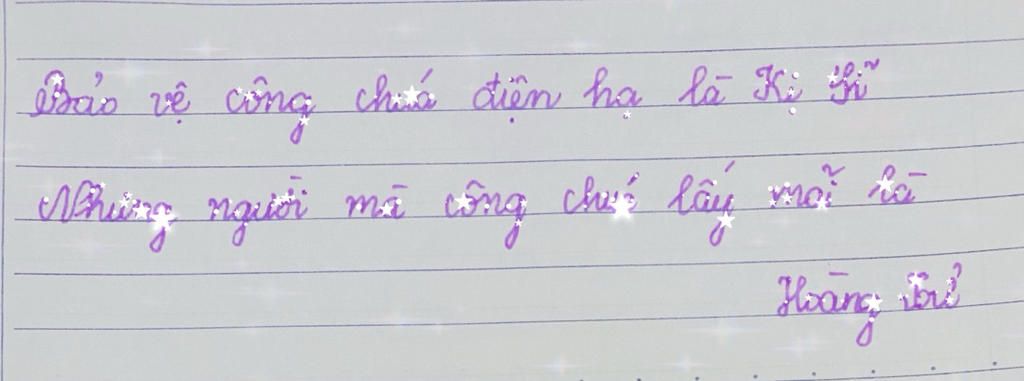 Bảo vệ công chúa điện hạ là Kị sĩ
Nhưng người mà công chúa lấy mãi là
Hoàng tử